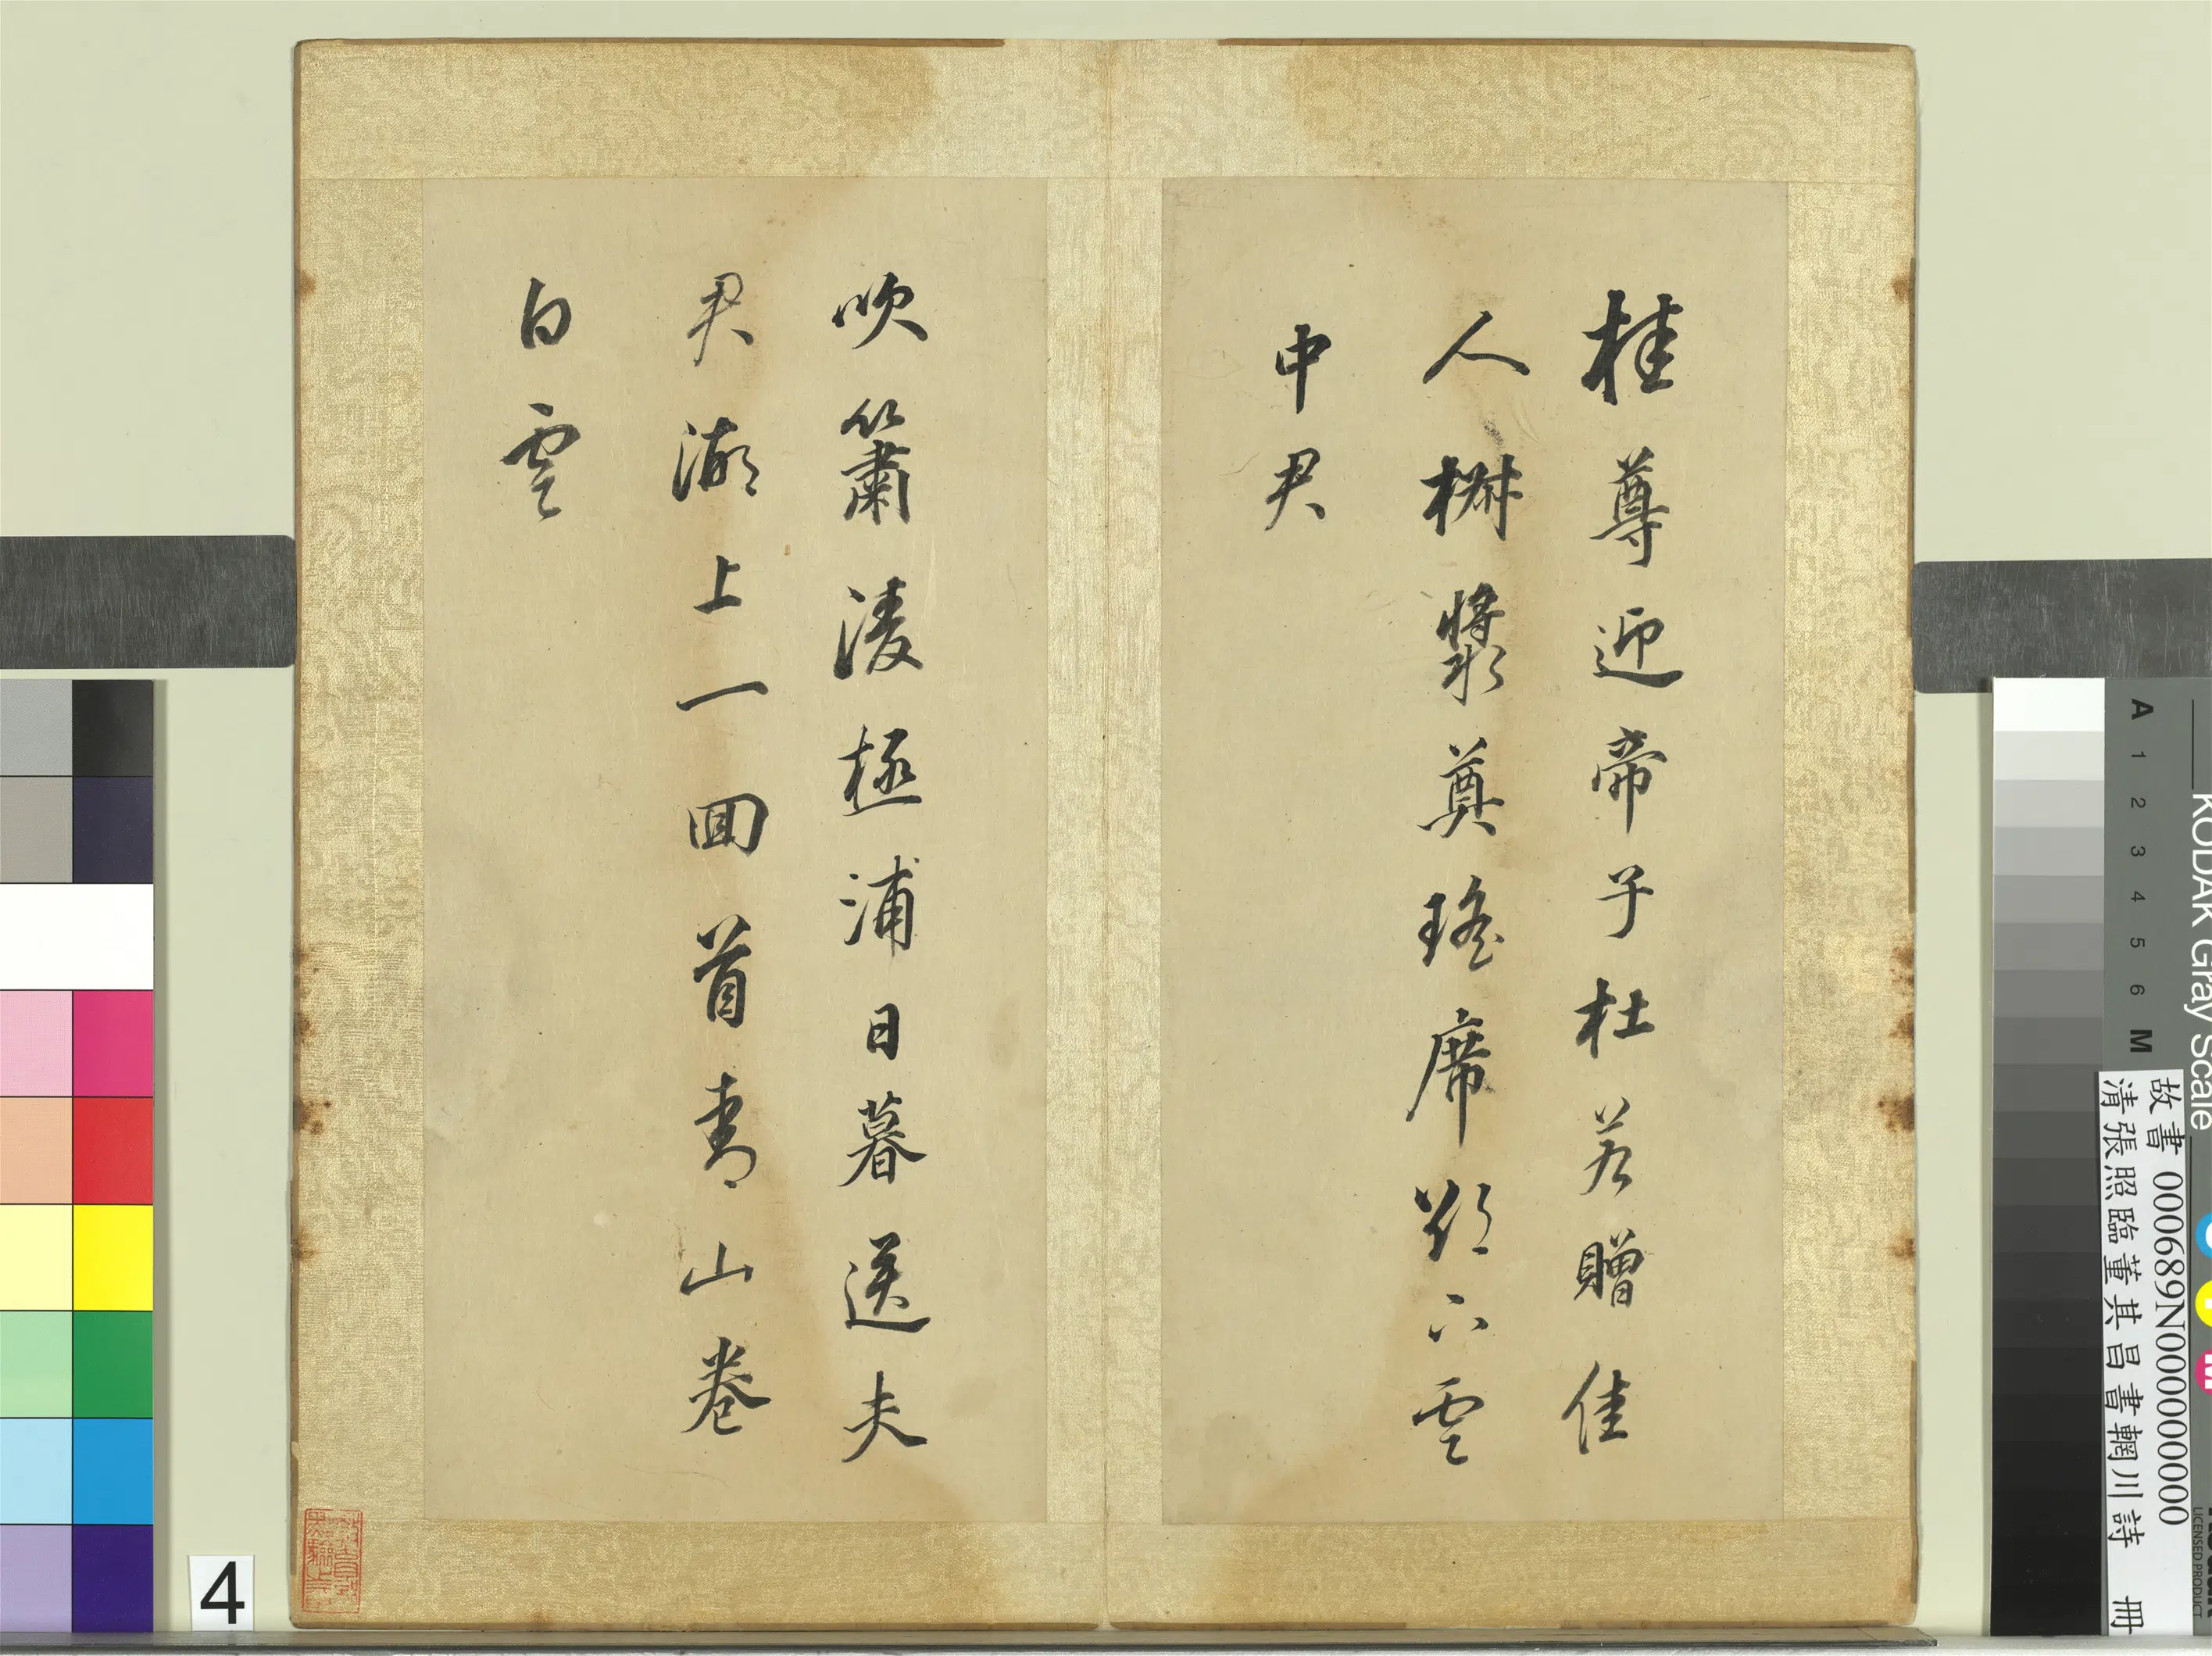 桂尊迎帝子杜若贈佳
人椒漿奠瑤席欲下雲
中君
吹簫淩極浦日暮送夫
君湖上一回首青山卷
白雲
4
KODAK Gray Scale
A 1 2 3 4 5 6 M
故書 000689N000000000
清張照臨董其昌書輞川詩 冊
LICENSED PRODUCT